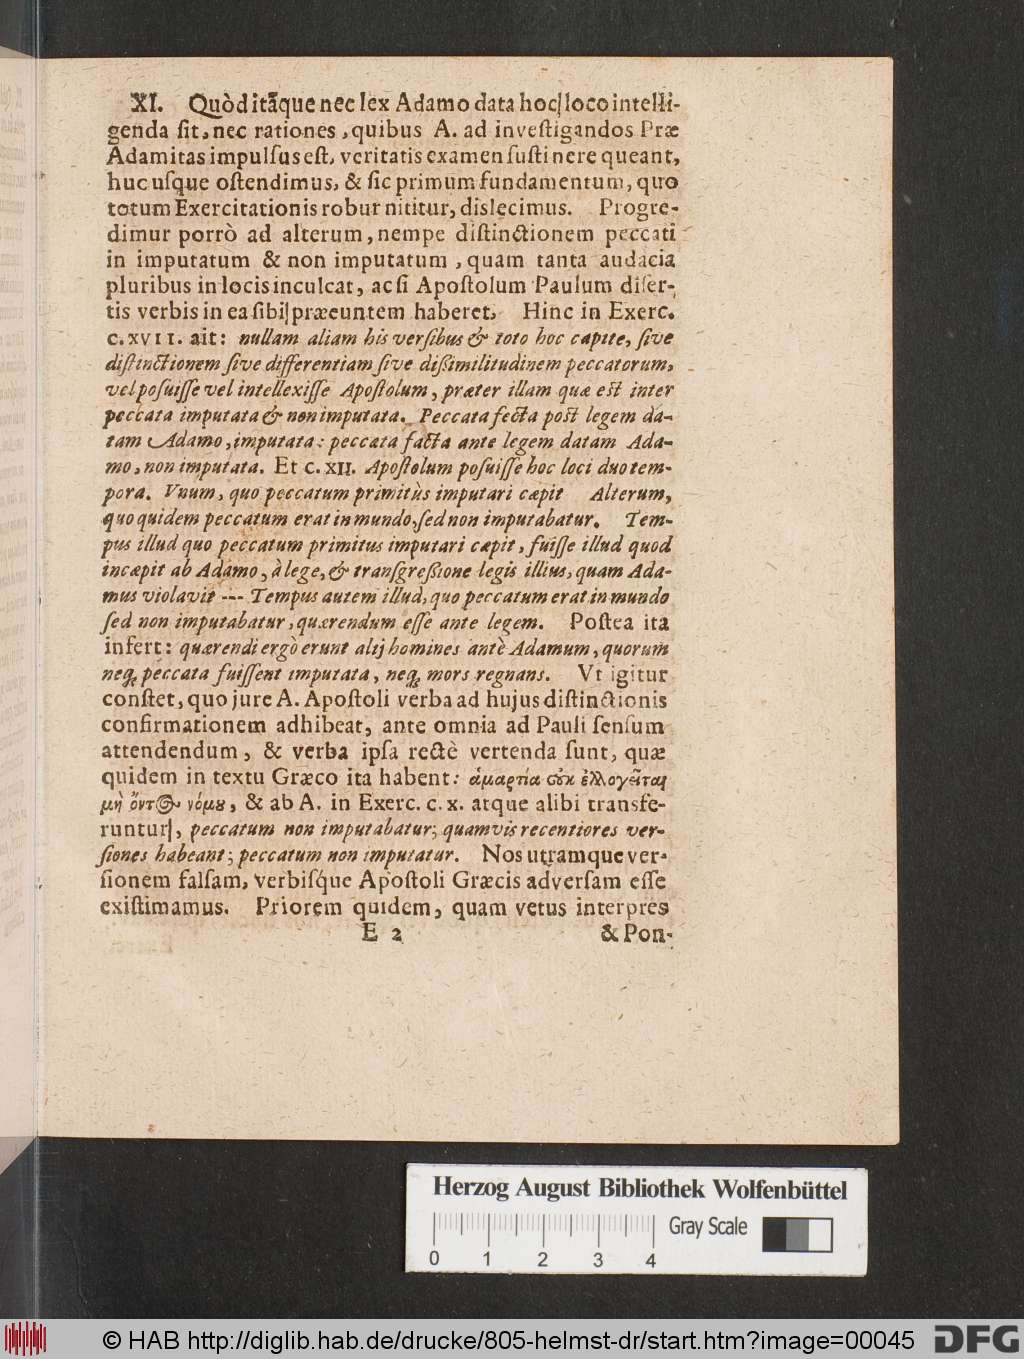 XI. Quòd itãque nec lex Adamo data hoc loco intelli-
genda ſit, nec rationes, quibus A. ad inveſtigandos Præ
Adamitas impulſus eſt, veritatis examen ſuſtinere queant,
huc uſque oſtendimus, & ſic primum fundamentum, quo
totum Exercitationis robur nititur, dislecimus. Progre-
dimur porrò ad alterum, nempe diſtinctionem peccati
in imputatum & non imputatum, quam tanta audacia
pluribus in locis inculcat, ac ſi Apoſtolum Paulum diſer-
tis verbis in ea ſibi præeuntem haberet. Hinc in Exerc.
c. XVII. ait: nullam aliam his verſibus & toto hoc capite, ſive
diſtinctionem ſive differentiam ſive diſſimilitudinem peccatorum,
vel poſuiſſe vel intellexiſſe Apoſtolum, præter illam quæ eſt inter
peccata imputata & non imputata. Peccata fecta poſt legem da-
tam Adamo, imputata: peccata facta ante legem datam Ada-
mo, non imputata. Et c. XII. Apoſtolum poſuiſſe hoc loci duo tem-
pora. Vnum, quo peccatum primitùs imputari cæpit Alterum,
quo quidem peccatum erat in mundo, ſed non imputabatur. Tem-
pus illud quo peccatum primitus imputari cæpit, fuiſſe illud quod
incæpit ab Adamo, à lege, & tranſgreſſione legis illius, quam Ada-
mus violavit --- Tempus autem illud, quo peccatum erat in mundo
ſed non imputabatur, quærendum eſſe ante legem. Poſtea ita
infert: quærendi ergò erunt alij homines antè Adamum, quorum
neq; peccata fuiſſent imputata, neq; mors regnans. Vt igitur
conſtet, quo jure A. Apoſtoli verba ad hujus diſtinctionis
confirmationem adhibeat, ante omnia ad Pauli ſenſum
attendendum, & verba ipſa rectè vertenda ſunt, quæ
quidem in textu Græco ita habent: ἁμαρτία οὐκ ἐλλογεῖται
μὴ ὄντος νόμου, & ab A. in Exerc. c. x. atque alibi transfe-
runtur, peccatum non imputabatur; quamvis recentiores ver-
ſiones habeant; peccatum non imputatur. Nos utramque ver-
ſionem falſam, verbiſq́ue Apoſtoli Græcis adverſam eſſe
exiſtimamus. Priorem quidem, quam vetus interpres
E 2 & Pon-
Herzog August Bibliothek Wolfenbüttel
Gray Scale
0 1 2 3 4
© HAB http://diglib.hab.de/drucke/805-helmst-dr/start.htm?image=00045
DFG